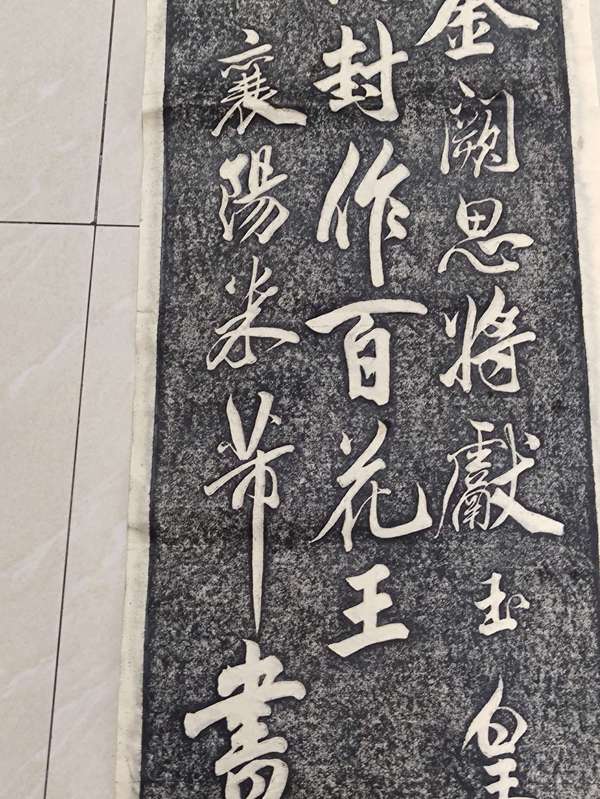 金闕思將獻玉皇
封作百花王
襄陽米芾書